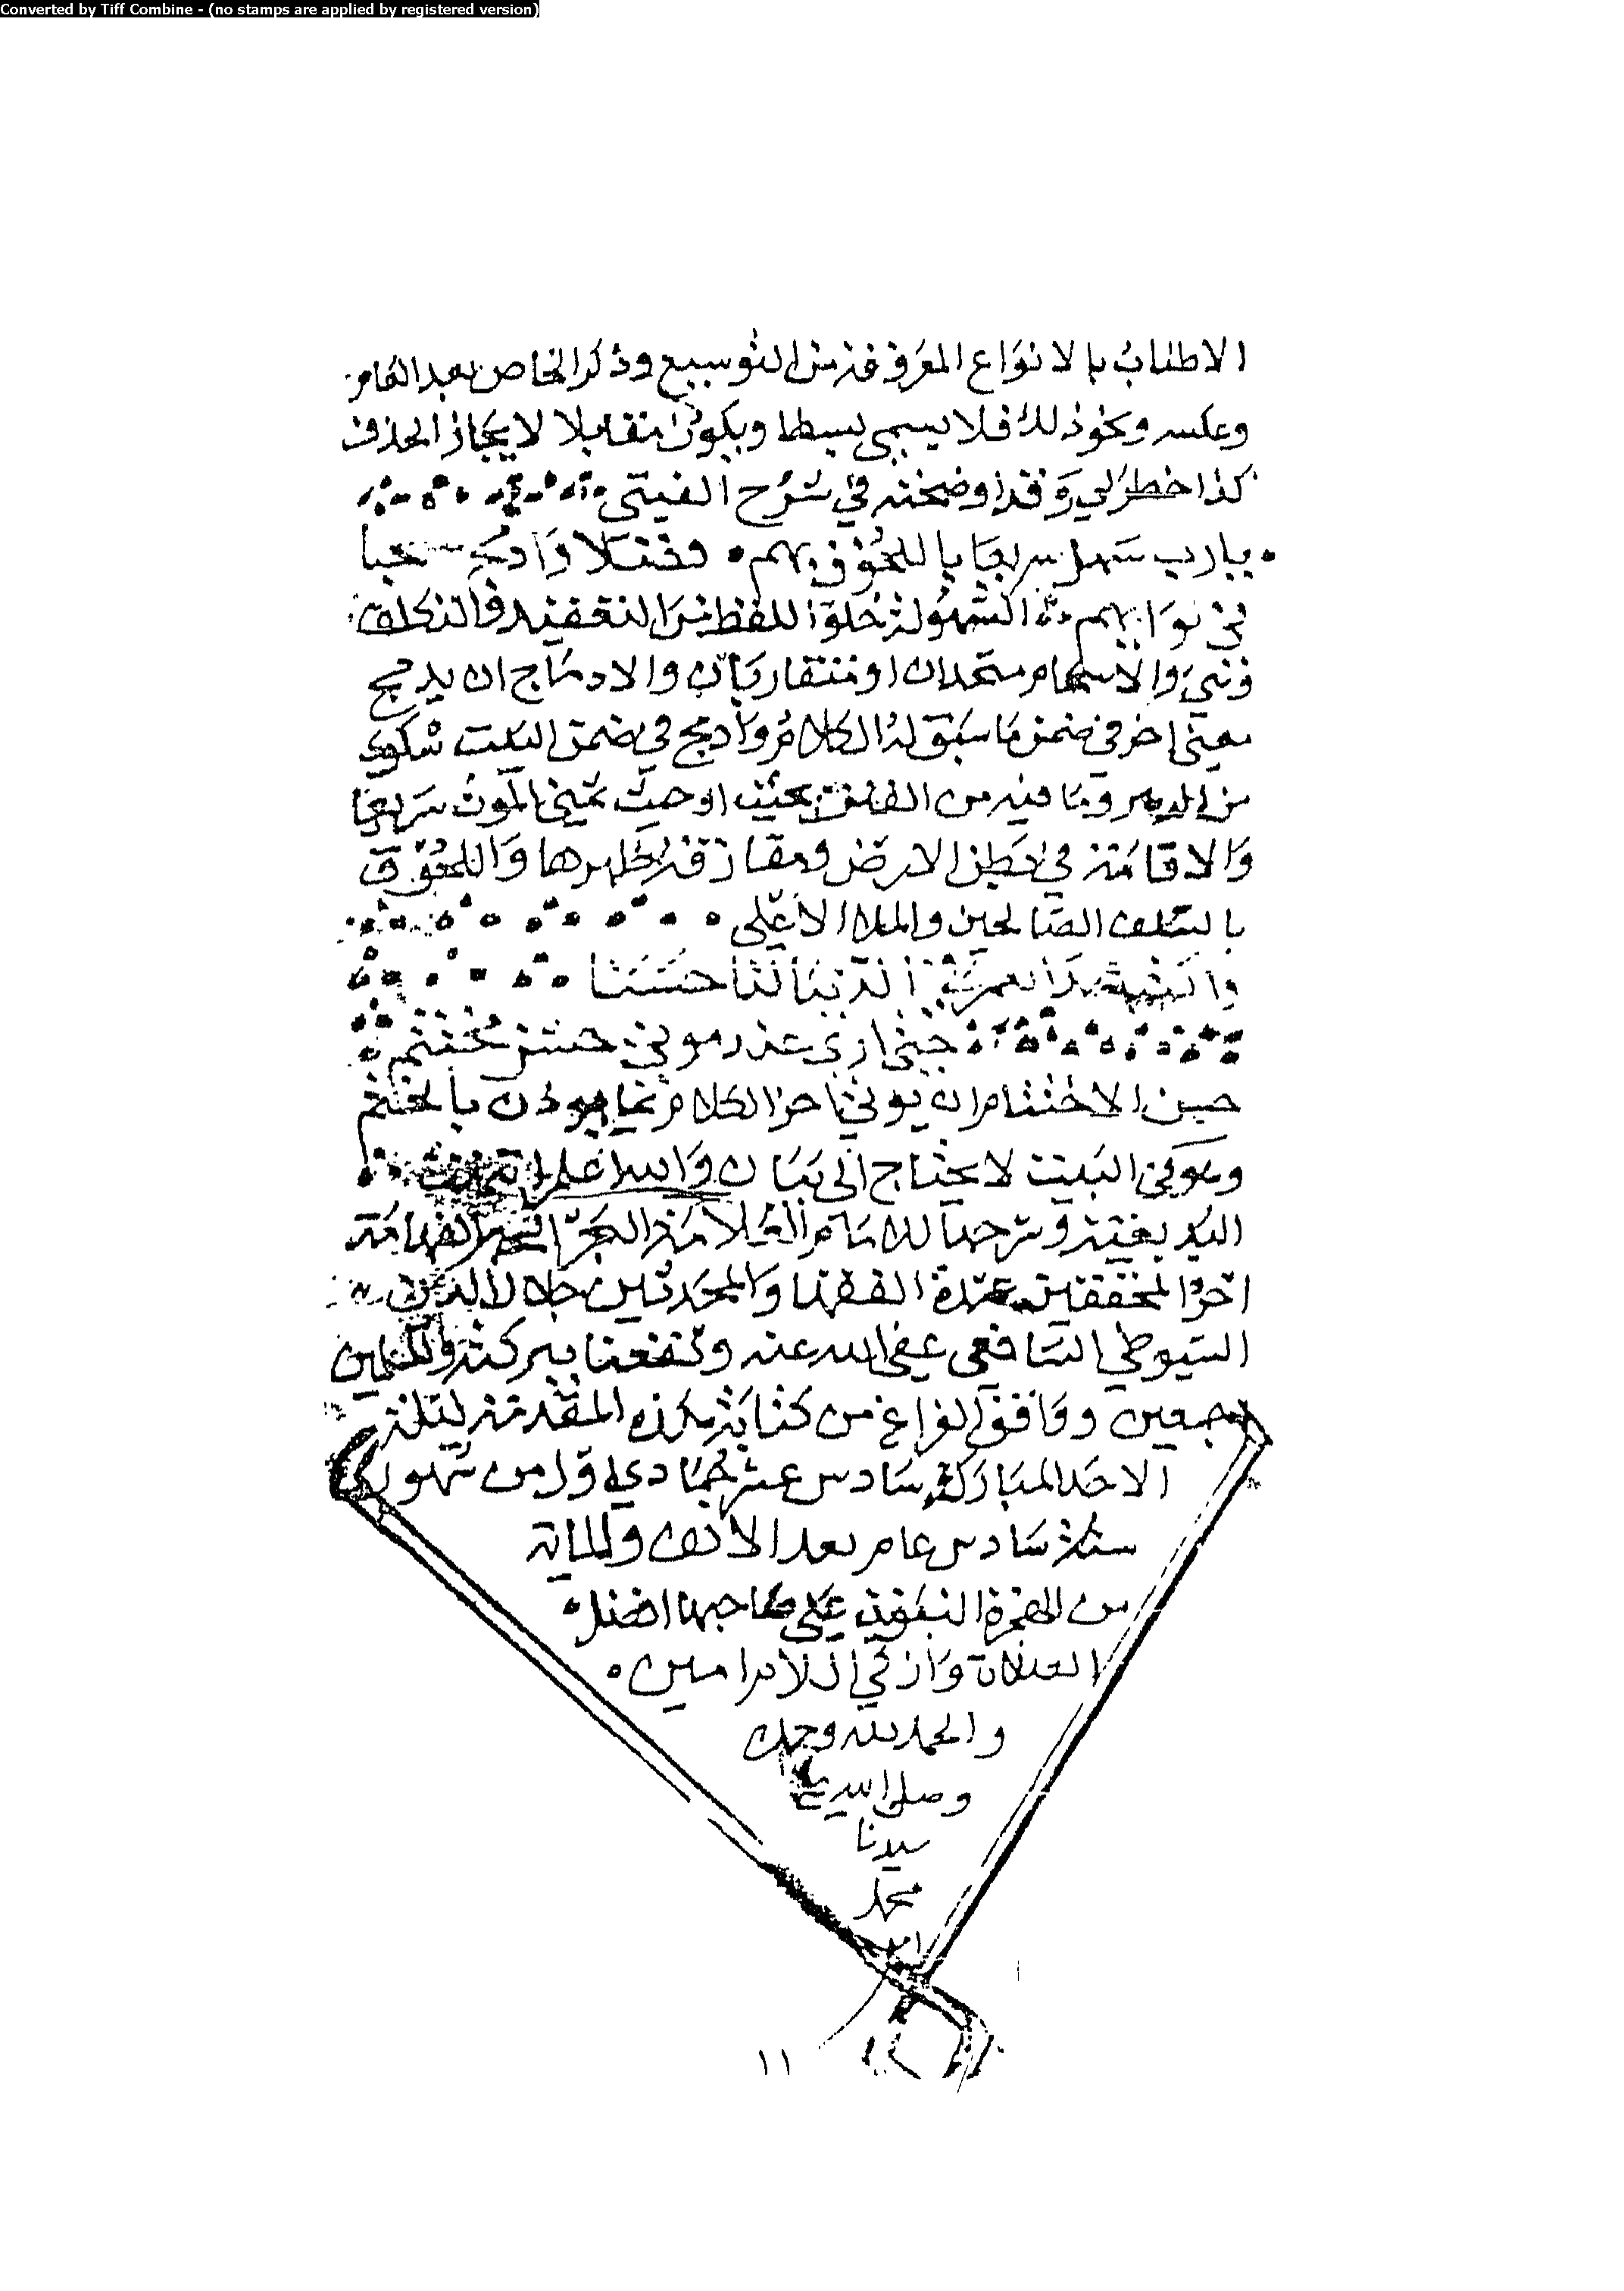 Converted by Tiff Combine - (no stamps are applied by registered version)
الاطناب بالانواع المعروفة من التوسيع وذكر الخاص بعد العام
وعكسه ونحو ذلك فلا يسمى بسطا ويكون مقابلا لايجاز الحذف
كذا خطر لي وقد اوضحته في شرح الفيتي
يارب سهل سريعا باللحوق بهم فضلا وادمج
في نوابهم السهولة خلو اللفظ من التعقيد والتكلف
والانسجام متحدان او متقاربان والادماج ان يدمج
معنى اخر في ضمن ما سبق له الكلام وادمج في ضمن البيت شكوى
من الدهر وما فيه من الفتن بحيث اوجبت تمني الموت سريعا
والاقامة في بطن الارض ومفارقة ظهرها واللحوق
بالسلف الصالحين والملا الاعلى
حسنا
حتى ارى عند موتي حسن مختتم
حسن الاختتام ان يوتي اخر الكلام بما يوذن بالختم
وهو في البيت لا يحتاج الى بيان والله اعلم تمت
البديعية وشرحها للامام العلامة البحر الفهامة
اخر المحققين عمدة الفقها والمحدثين جلال الدين
السيوطي الشافعي عفى الله عنه ونفعنا ببركته والمسلمين
اجمعين ووافق الفراغ من كتابة هذه المقدمة ليلة
الاحد المبارك سادس عشر جمادي اول من شهور
سنة سادس عام بعد الالف والماية
من الهجرة النبوية على صاحبها افضل
الصلاة وازكى السلام امين
والحمد لله وحده
وصلى الله على
سيدنا
محمد
١١